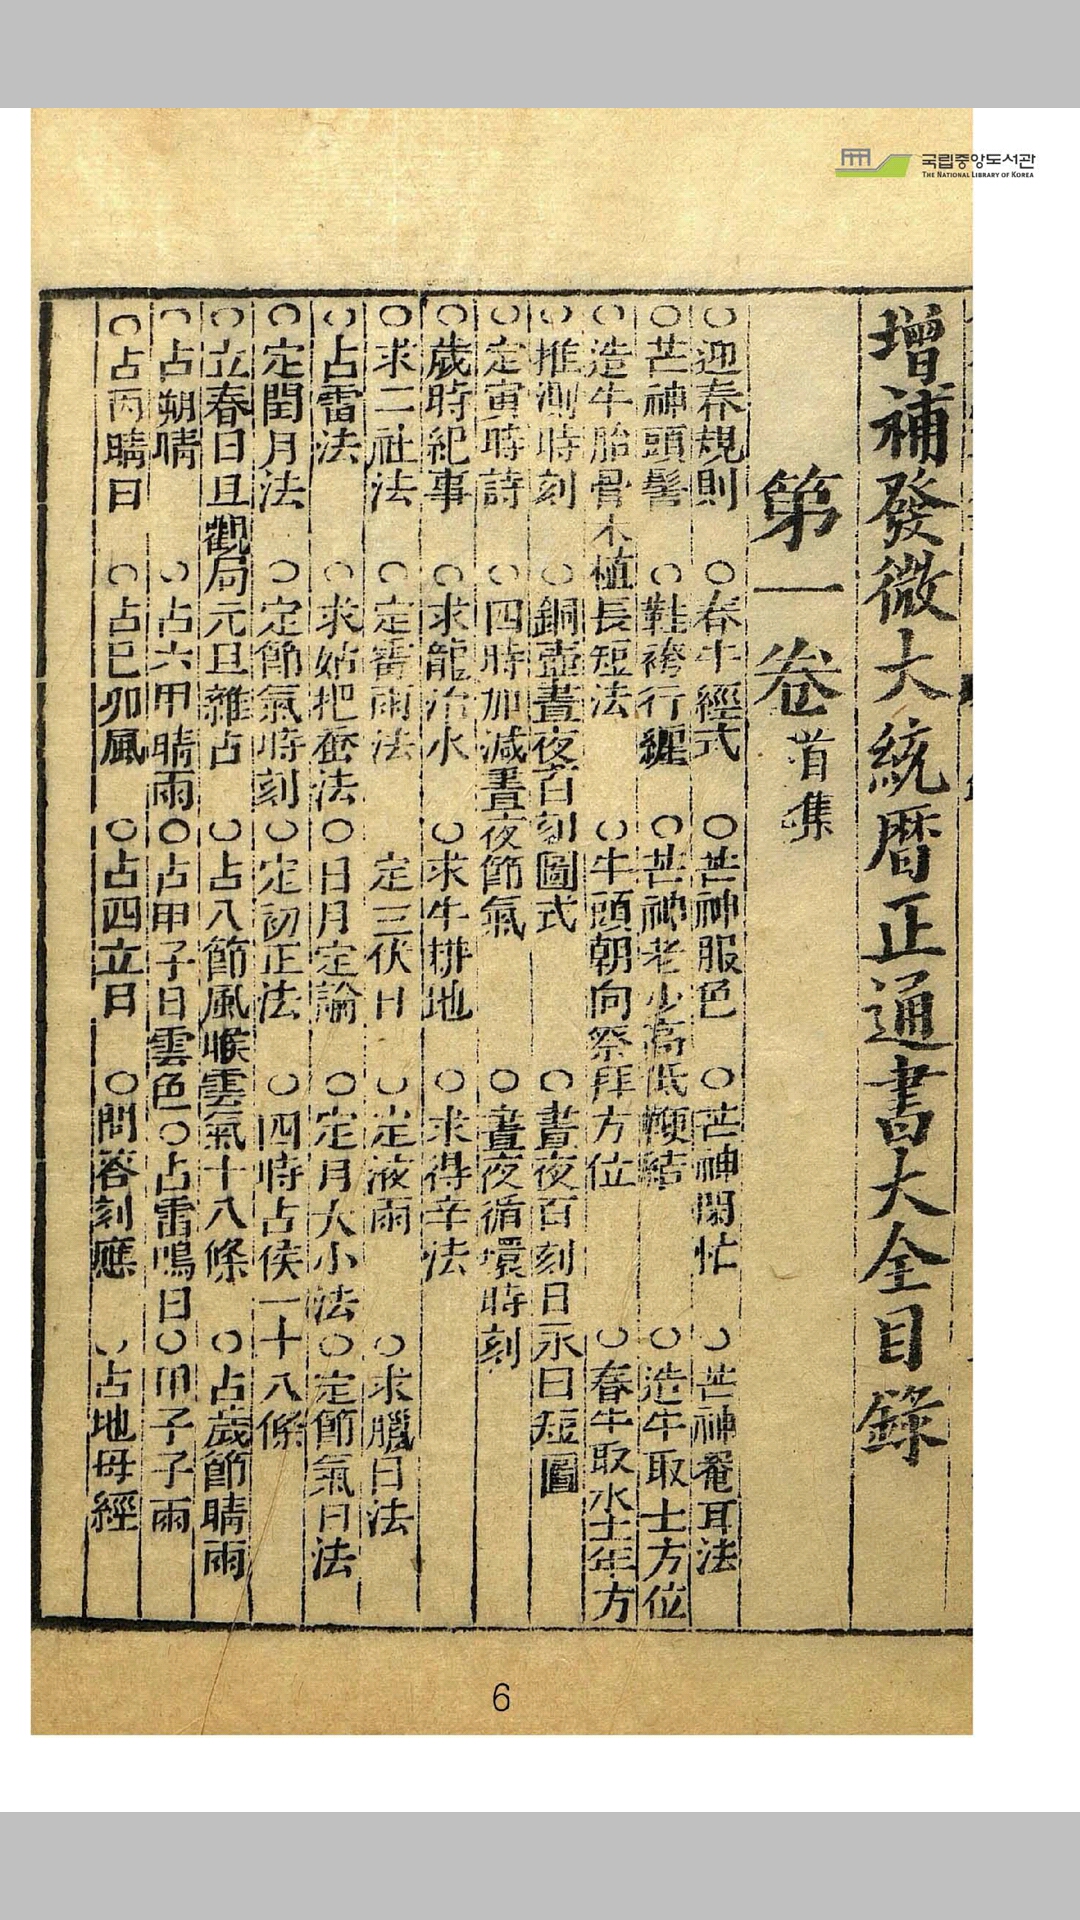 국립중앙도서관
THE NATIONAL LIBRARY OF KOREA
增補發微大統曆正通書大全目錄
第一卷 首集
○迎春規則 ○春牛經式 ○芒神服色 ○芒神閑忙 ○芒神罨耳法
○芒神頭髻 ○鞋袴行纏 ○芒神老少高低 結 ○造牛取土方位
○造牛胎骨木植長短法 ○牛頭朝向祭拜方位 ○春牛取水土年方
○推測時刻 ○銅壺晝夜百刻圖式 ○晝夜百刻日永日短圖
○定寅時詩 ○四時加減晝夜節氣 ○晝夜循環時刻
○歲時紀事 ○求龍治水 ○求牛耕地 ○求得辛法
○求二社法 ○定霉雨法 定三伏日 ○定液雨 ○求臘日法
○占雷法 ○求姑把蚕法 ○日月定論 ○定月大小法 ○定節氣日法
○定閏月法 ○定節氣時刻 ○定初正法 ○四時占侯一十八條
○立春日且觀局元旦雜占 ○占八節風喉雲氣十八條 ○占歲節晴雨
○占朔晴 ○占六甲晴雨 ○占甲子日雲色 ○占雷鳴日 ○甲子子雨
○占丙晴日 ○占巳卯風 ○占四立日 ○問答刻應 ○占地母經
6